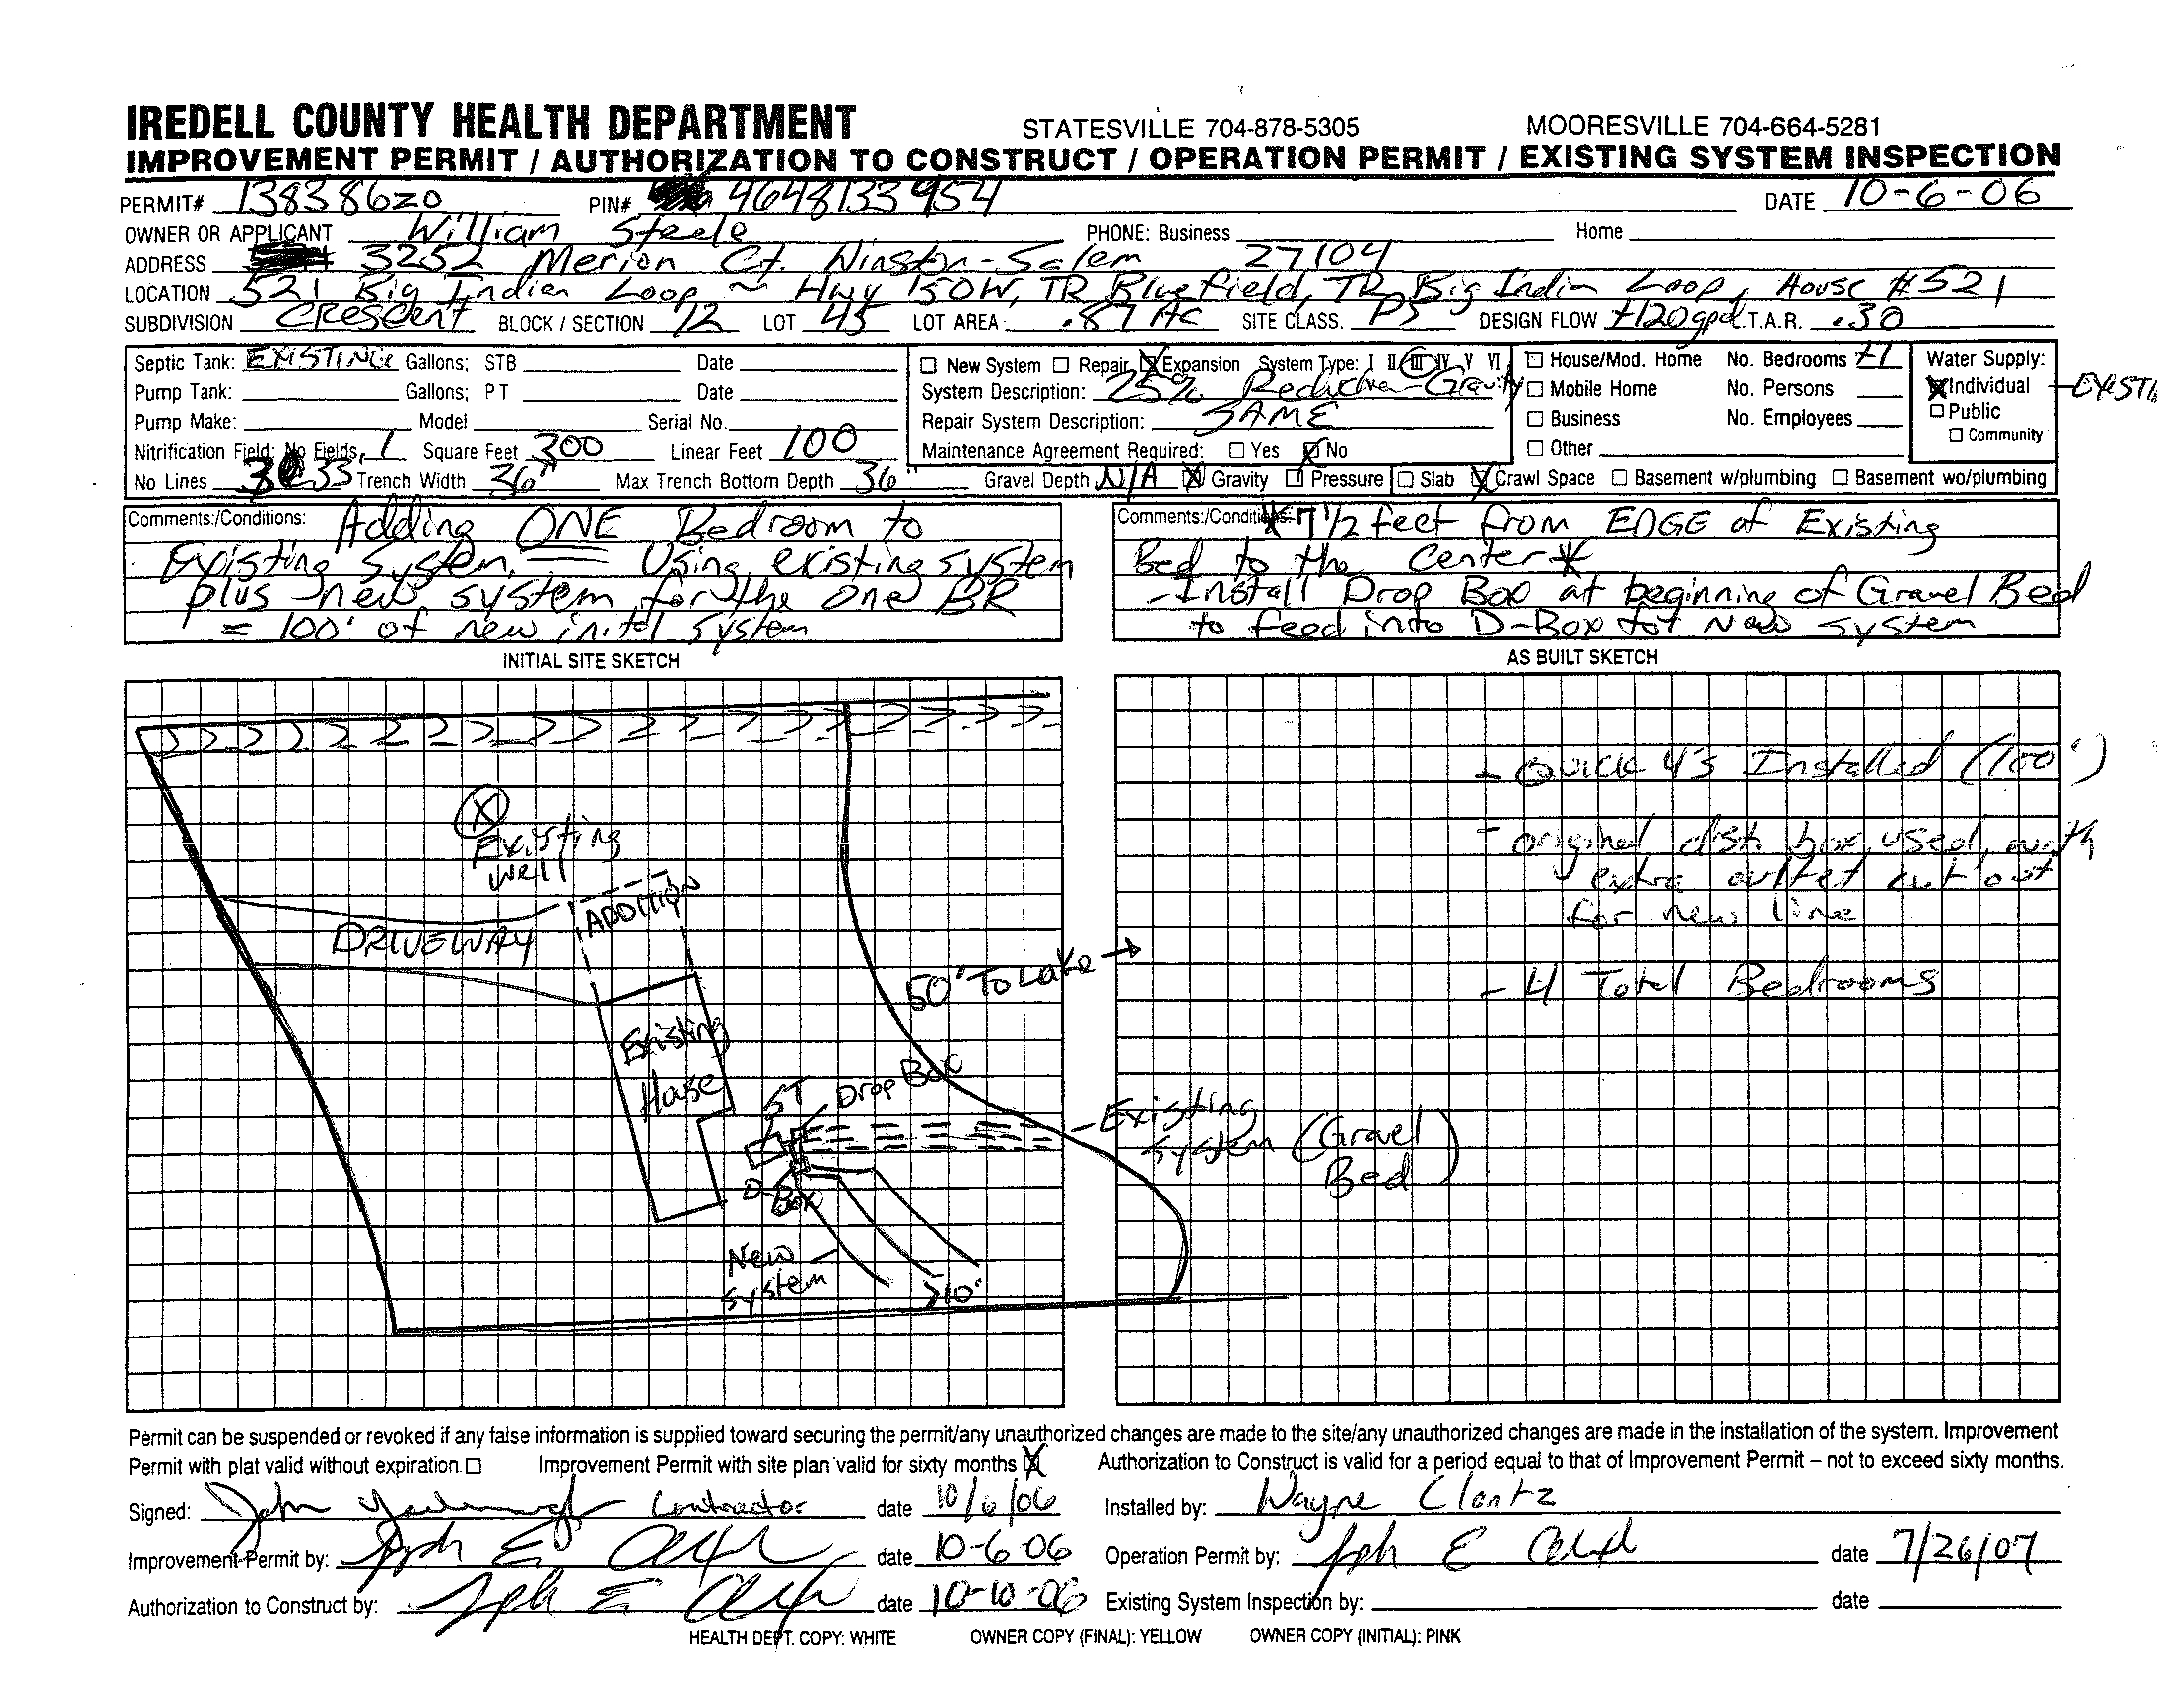 IREDELL COUNTY HEALTH DEPARTMENT STATESVILLE 704-878-5305 MOORESVILLE 704-664-5281
IMPROVEMENT PERMIT / AUTHORIZATION TO CONSTRUCT / OPERATION PERMIT / EXISTING SYSTEM INSPECTION
PERMIT# 1383862O PIN# 4648133954 DATE 10-6-06
OWNER OR APPLICANT William Steele PHONE: Business Home
ADDRESS 3252 Merion Ct. Winston-Salem 27104
LOCATION 521 Big Indian Loop ~ Hwy 150W, TR Bluefield, TR Big Indian Loop, House #521
SUBDIVISION Crescent BLOCK / SECTION 12 LOT 45 LOT AREA: .87 Ac SITE CLASS. PS DESIGN FLOW +120gpd L.T.A.R. .30
Septic Tank: EXISTING Gallons; STB Date
Pump Tank: Gallons; P T Date
Pump Make: Model Serial No.
Nitrification Field: No Fields 1 Square Feet 300 Linear Feet 100
No Lines 3@33 Trench Width 36" Max Trench Bottom Depth 36" Gravel Depth N/A Gravity Pressure Slab Crawl Space Basement w/plumbing Basement wo/plumbing
New System Repair Expansion System Type: I II III IV V VI
System Description: 25% Reduction-Gravity
Repair System Description: SAME
Maintenance Agreement Required: Yes No
House/Mod. Home No. Bedrooms +1
Mobile Home No. Persons
Business No. Employees
Other
Water Supply:
Individual
Public
Community
Comments:/Conditions: Adding ONE Bedroom to
Existing System. Using existing system
plus new system for the one BR
= 100' of new inital system
Comments:/Conditions: *7 1/2 feet from EDGE of Existing
Bed to the Center*
-Install Drop Box at beginning of Gravel Bed
to feed into D-Box for New system
INITIAL SITE SKETCH
AS BUILT SKETCH
Existing
Well
ADDITION
DRIVEWAY
50' To Lake →
Existing
House
ST
Drop Box
D-Box
New
System
>10'
-Existing
System (Gravel
Bed)
- Quick 4's Installed (100')
- original dist. box used, with
extra outlet cut out
for new line
- 4 Total Bedrooms
Permit can be suspended or revoked if any false information is supplied toward securing the permit/any unauthorized changes are made to the site/any unauthorized changes are made in the installation of the system. Improvement
Permit with plat valid without expiration. Improvement Permit with site plan valid for sixty months Authorization to Construct is valid for a period equal to that of Improvement Permit – not to exceed sixty months.
Signed: John Contractor date 10/6/06 Installed by: Wayne Clontz
Improvement Permit by: date 10-6-06 Operation Permit by: date 7/26/07
Authorization to Construct by: date 10-10-06 Existing System Inspection by: date
HEALTH DEPT. COPY: WHITE OWNER COPY (FINAL): YELLOW OWNER COPY (INITIAL): PINK